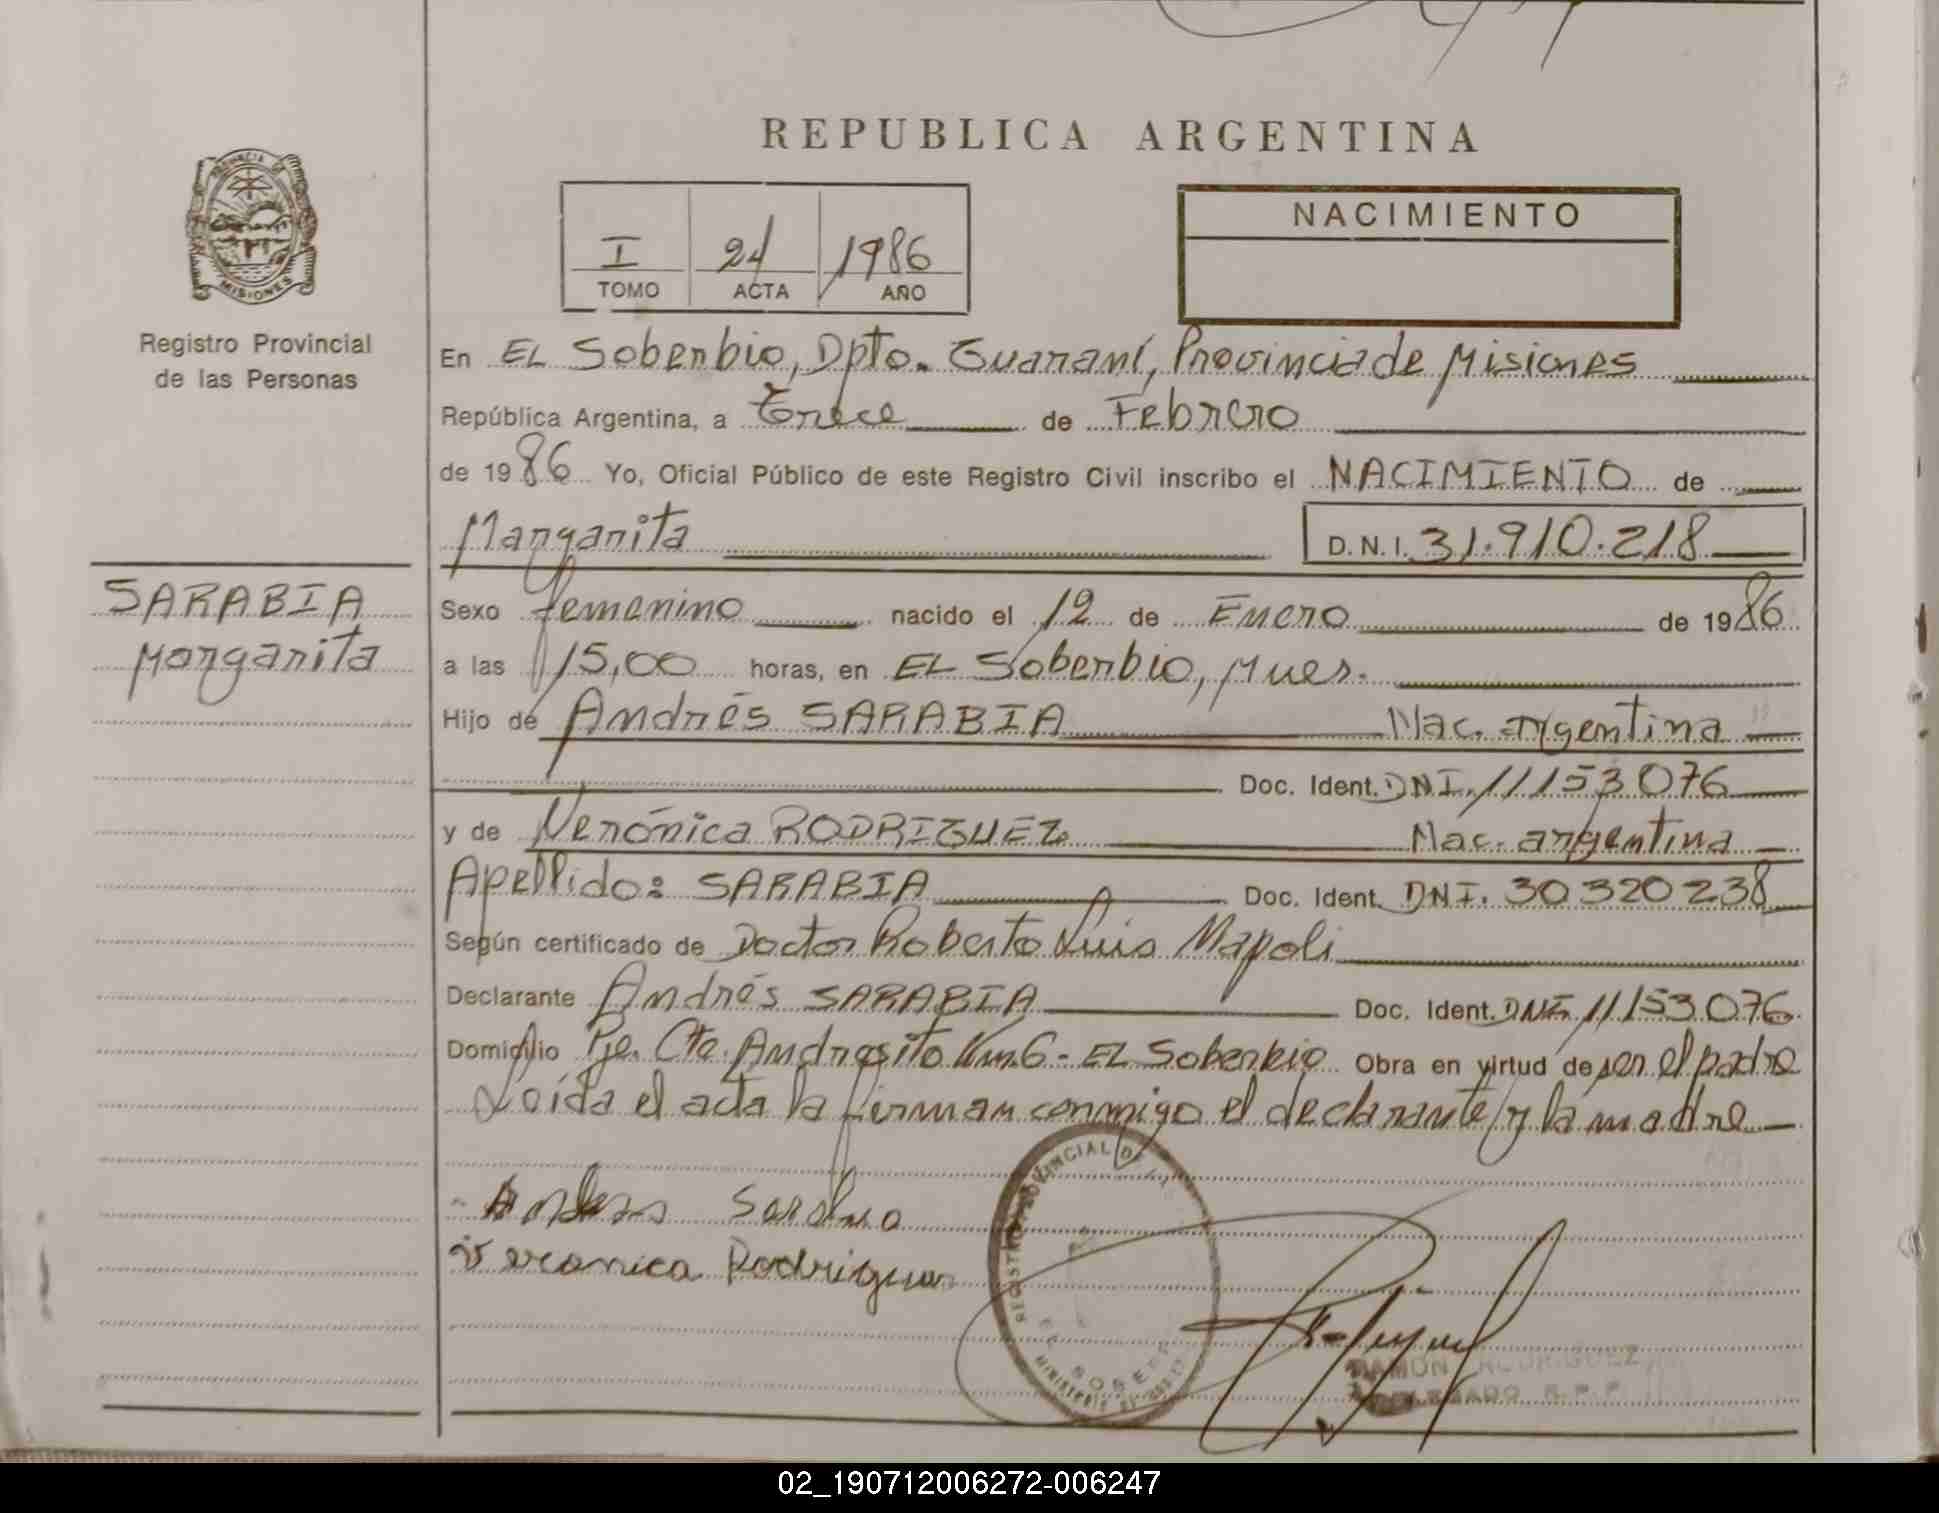 REPUBLICA ARGENTINA
PROVINCIA DE MISIONES
Registro Provincial
de las Personas
I 24 1986
TOMO ACTA AÑO
NACIMIENTO
En EL Soberbio, Dpto. Guaraní, Provincia de Misiones
República Argentina, a Trece de Febrero
de 1986 Yo, Oficial Público de este Registro Civil inscribo el NACIMIENTO de
Margarita D.N.I. 31.910.218
SARABIA
Margarita
Sexo femenino nacido el 12 de Enero de 1986
a las 15,00 horas, en EL Soberbio, Mnes.
Hijo de Andrés SARABIA Nac. argentina
Doc. Ident. DNI. 11153076
y de Verónica RODRIGUEZ Nac. argentina
Apellido: SARABIA Doc. Ident. DNI. 30320238
Según certificado de Doctor Roberto Luis Napoli
Declarante Andrés SARABIA Doc. Ident. DNI. 11153076
Domicilio Pje. Cte. Andresito Km.6 - EL Soberbio Obra en virtud de ser el padre
Leída el acta la firman conmigo el declarante y la madre
Andres Sarabia
Veronica Rodriguez
REGISTRO PROVINCIAL DE
RAMON RODRIGUEZ
DELEGADO R.P.P.
02_190712006272-006247